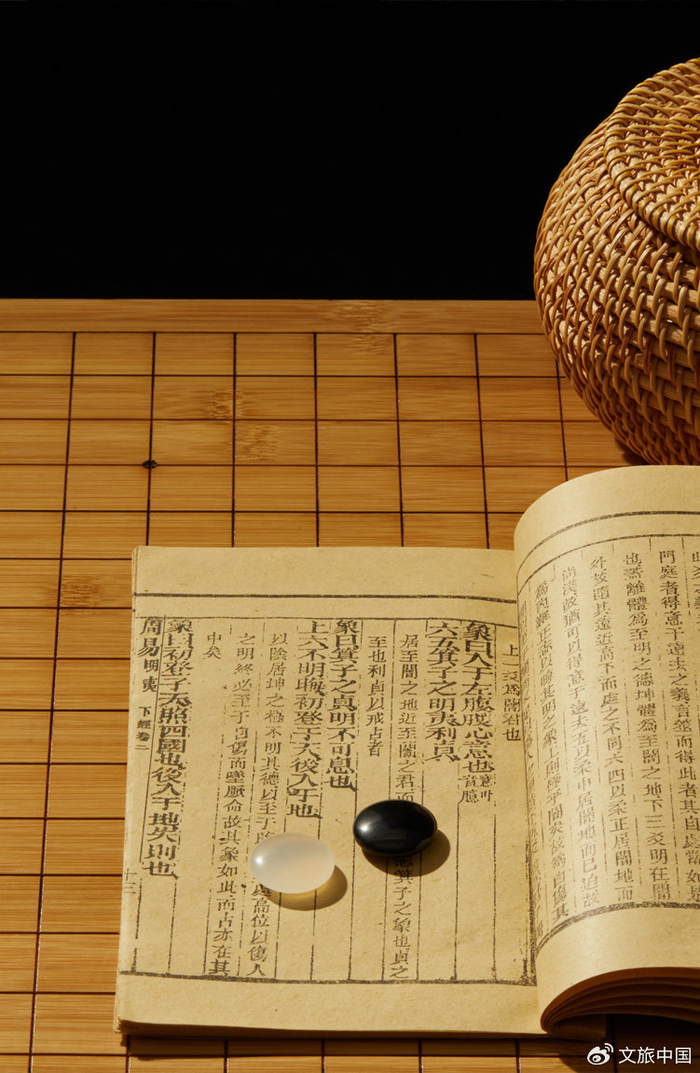 門庭者得意于遠去之義言筮而得此者其自處當如是
也蓋離體為至明之德坤體為至闇之地下三爻明在闇
外故隨其遠近高下而處之不同六四以柔正居闇地而
尚淺故猶可以得意于遠去五以柔中居闇地而已迫故
為內難正志以晦其明之象上則極乎闇矣故為自傷其
上一爻為闇君也
象曰入于左腹獲心意也 意叶音臆
六五箕子之明夷利貞
居至闇之地近至闇之君而 志箕子之象也貞之
至也利貞以戒占者
象曰箕子之貞明不可息也
上六不明晦初登于天後入于地
以陰居坤之極不明其德以至于 處高位以傷人
之明終必至于自傷而墜厥命故其象如此而占亦在其
中矣
象曰初登于天照四國也後入于地失則也
周易明夷 下經卷二 十三
文旅中国